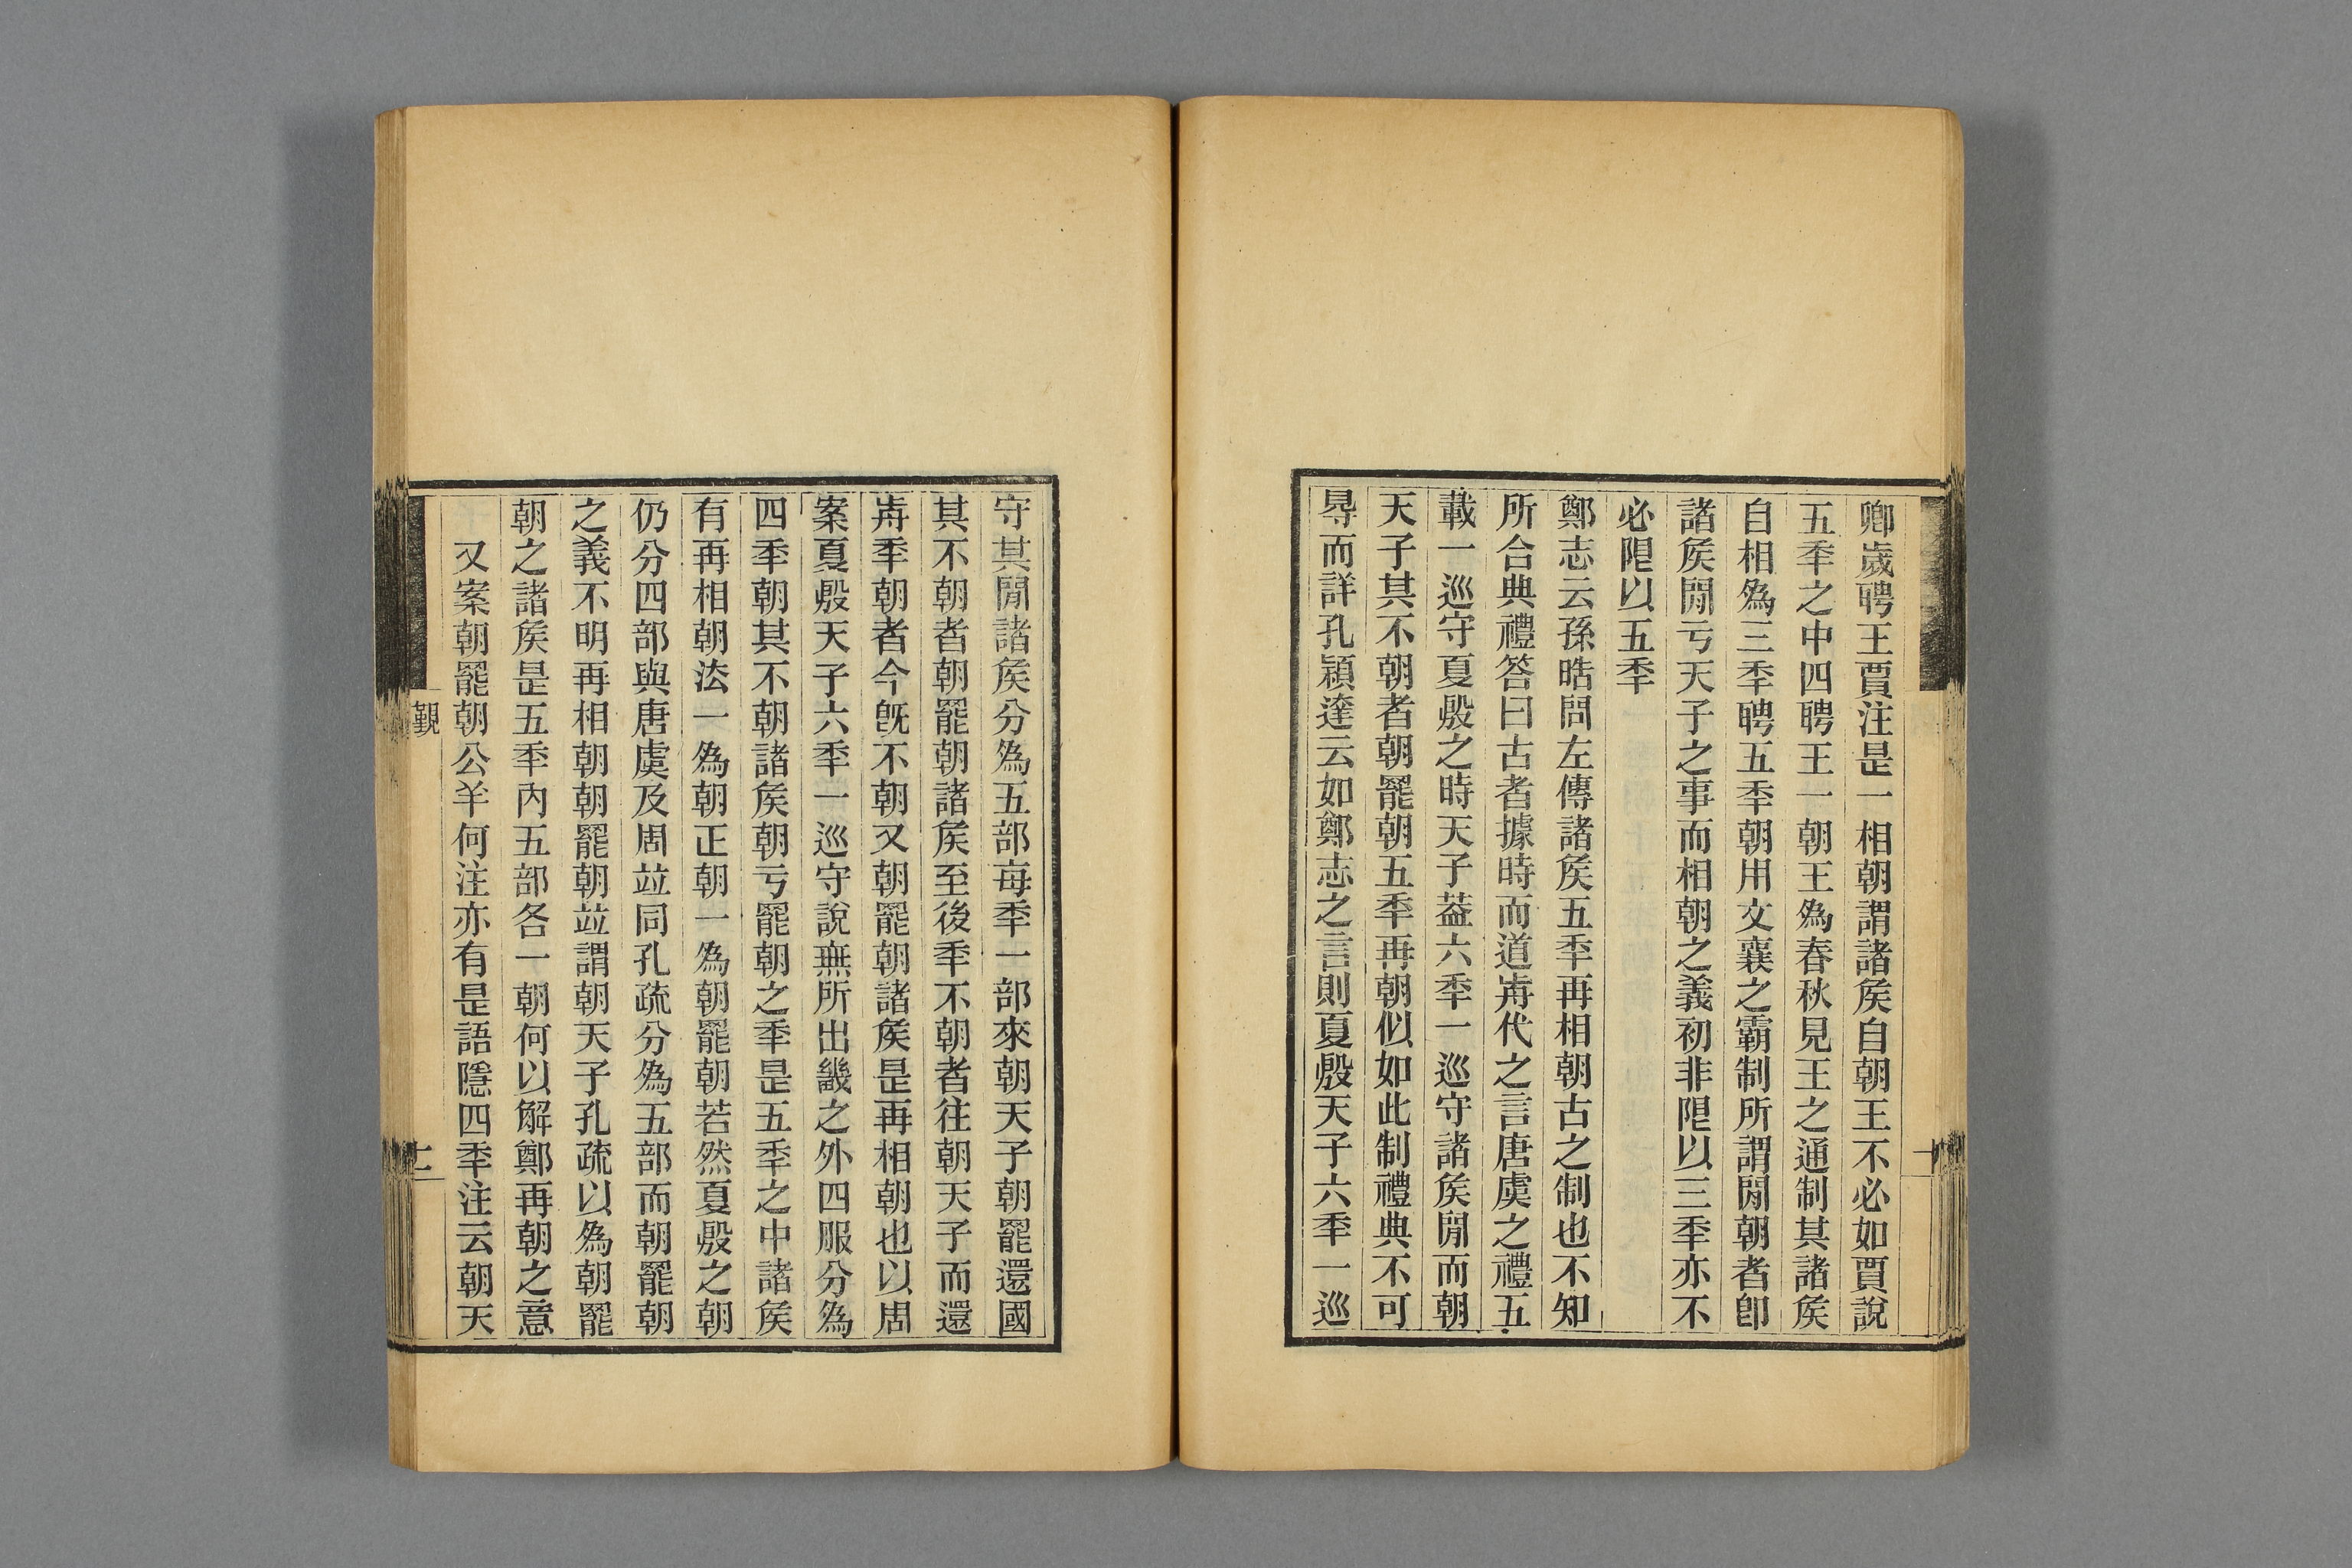 卿歲聘王賈注是一相朝謂諸矦自朝王不必如賈說
五秊之中四聘王一朝王爲春秋見王之通制其諸矦
自相爲三秊聘五秊朝用文襄之霸制所謂閒朝者卽
諸矦閒亏天子之事而相朝之義初非限以三秊亦不
必限以五秊
鄭志云孫晧問左傳諸矦五秊再相朝古之制也不知
所合典禮答曰古者據時而道歬代之言唐虞之禮五
載一巡守夏殷之時天子葢六秊一巡守諸矦閒而朝
天子其不朝者朝罷朝五秊再朝似如此制禮典不可
㝵而詳孔穎達云如鄭志之言則夏殷天子六秊一巡
守其閒諸矦分爲五部每秊一部來朝天子朝罷還國
其不朝者朝罷朝諸矦至後秊不朝者往朝天子而還
歬秊朝者今旣不朝又朝罷朝諸矦是再相朝也以周
案夏殷天子六秊一巡守說無所出畿之外四服分爲
四秊朝其不朝諸矦朝亏罷朝之秊是五秊之中諸矦
有再相朝法一爲朝正朝一爲朝罷朝若然夏殷之朝
仍分四部與唐虞及周竝同孔疏分爲五部而朝罷朝
之義不明再相朝朝罷朝竝謂朝天子孔疏以爲朝罷
朝之諸矦是五秊內五部各一朝何以解鄭再朝之意
又案朝罷朝公羊何注亦有是語隱四秊注云朝天
覲
十二